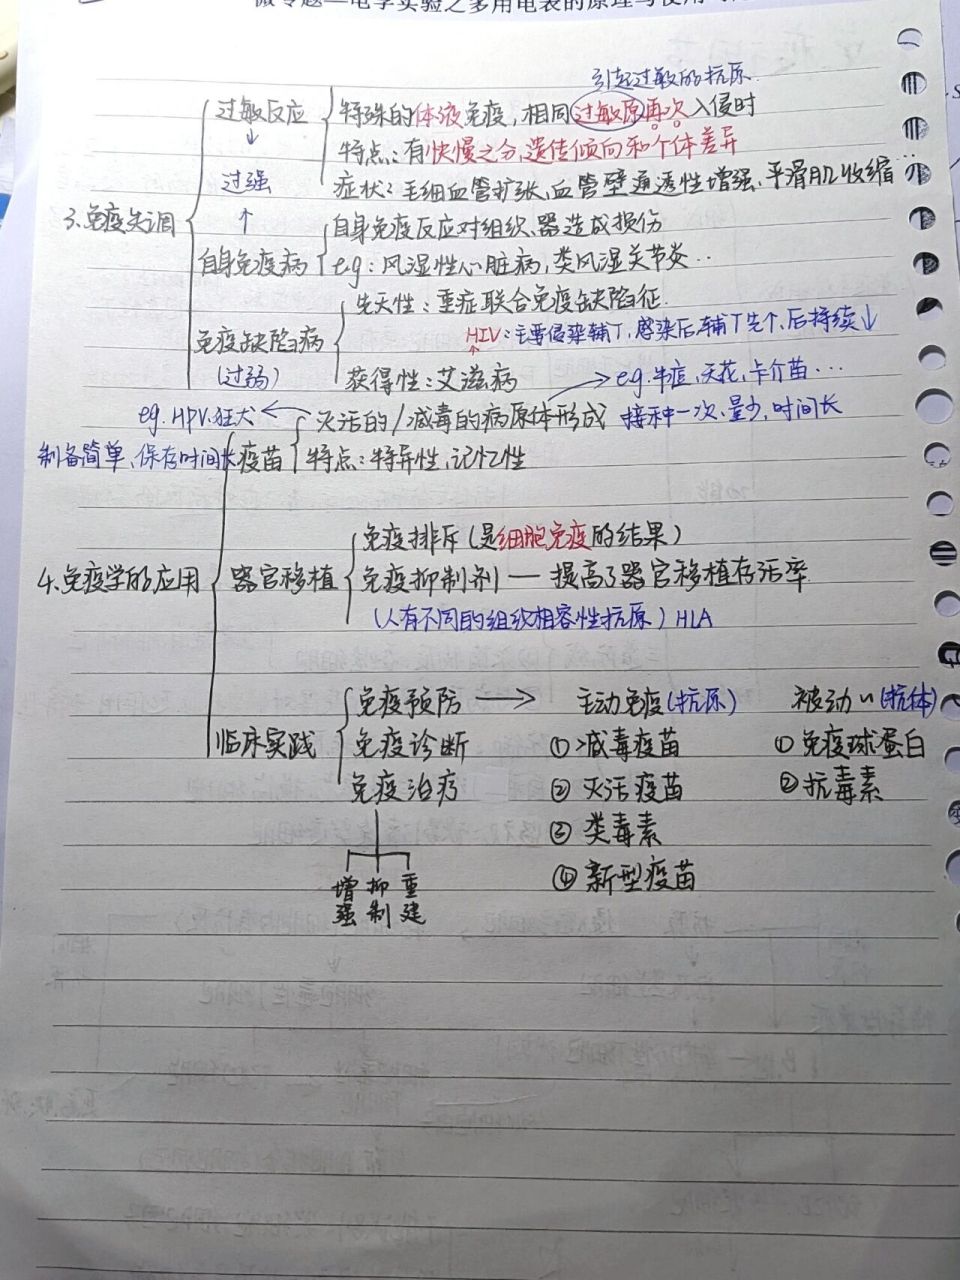 微专题—电学实验之多用电表的原理与使用
引起过敏的抗原
过敏反应 特殊的体液免疫，相同过敏原再次入侵时
↓ 特点：有快慢之分，遗传倾向和个体差异
过强 症状：毛细血管扩张、血管壁通透性增强、平滑肌收缩…
3.免疫失调 ↑ 自身免疫反应对组织、器造成损伤
自身免疫病 eg：风湿性心脏病，类风湿关节炎..
先天性：重症联合免疫缺陷征.
免疫缺陷病 HIV：主要侵染辅T，感染后，辅T先个，后持续↓
(过弱) 获得性：艾滋病 → eg.牛痘、天花、卡介苗...
eg.HPV.狂犬 ← 灭活的/减毒的病原体形成 接种一次、量少、时间长
制备简单、保存时间长 疫苗 特点：特异性，记忆性
免疫排斥(是细胞免疫的结果)
4.免疫学的应用 器官移植 免疫抑制剂—提高了器官移植存活率
(人有不同的组织相容性抗原) HLA
免疫预防 → 主动免疫(抗原) 被动〃(抗体)
临床实践 免疫诊断 ①减毒疫苗 ①免疫球蛋白
免疫治疗 ②灭活疫苗 ②抗毒素
③类毒素
增强 抑制 重建 ④新型疫苗